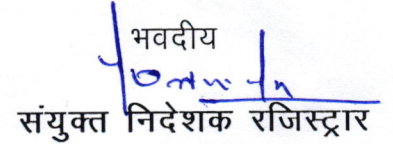 भवदीय
संयुक्त निदेशक रजिस्ट्रार